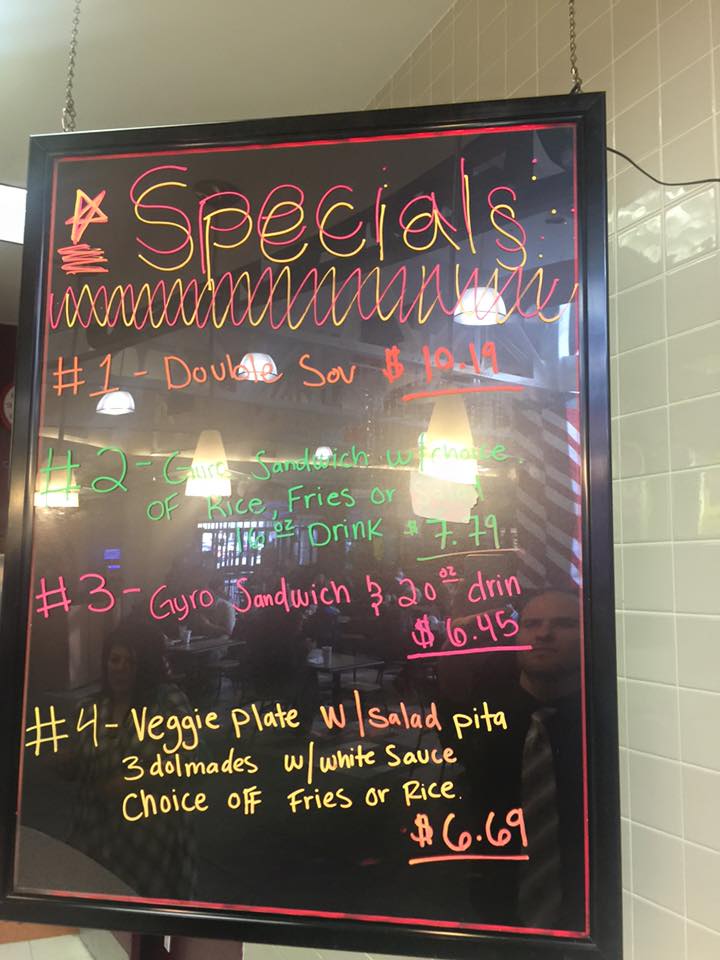 Specials
#1 - Double Sov $ 10.19
#2 - Gyro Sandwich w/choice
OF Rice, Fries or
16 oz Drink $ 7.79
#3 - Gyro Sandwich & 20 oz drin
$6.45
#4 - Veggie Plate w/salad pita
3 dolmades w/white Sauce
Choice off Fries or Rice.
$6.69